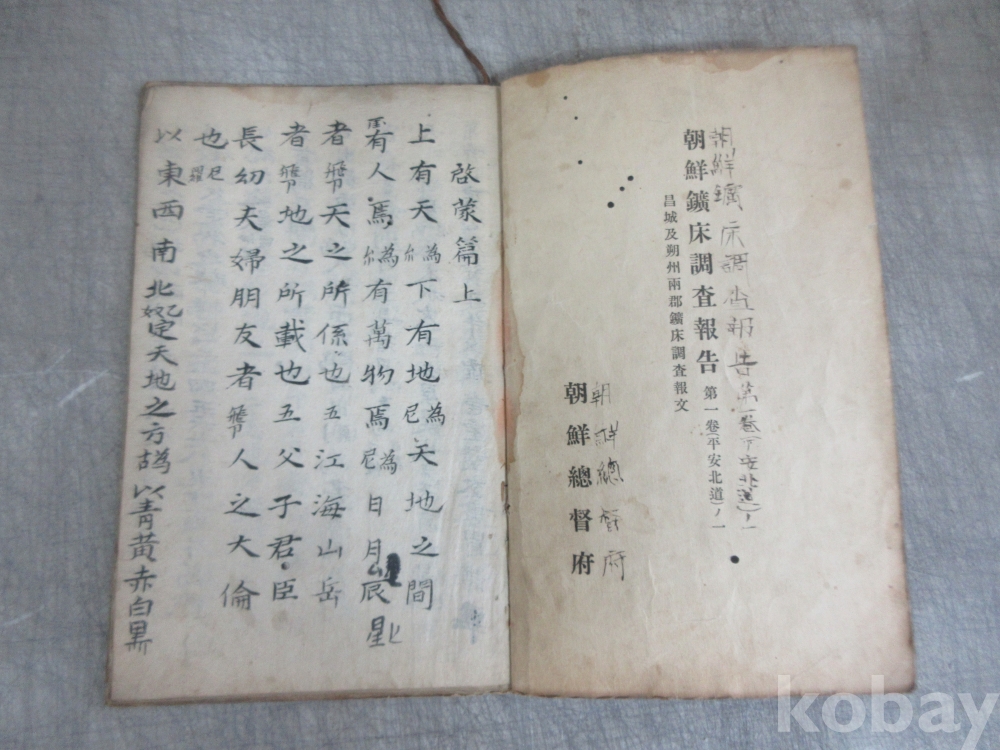 朝鮮鑛床調査報告第一卷(平安北道)ノ一
朝鮮鑛床調査報告 第一卷(平安北道)ノ一
昌城及朔州兩郡鑛床調査報文
朝鮮總督府
朝鮮總督府
啓蒙篇上
上有天為尓下有地為尼天地之間
有人焉為尓有萬物焉為尼日月辰星
者飛天之所係也五江海山岳
者飛地之所載也五父子君臣
長幼夫婦朋友者飛人之大倫
也尼羅
以東西南北定天地之方為古以青黃赤白黑
kobay